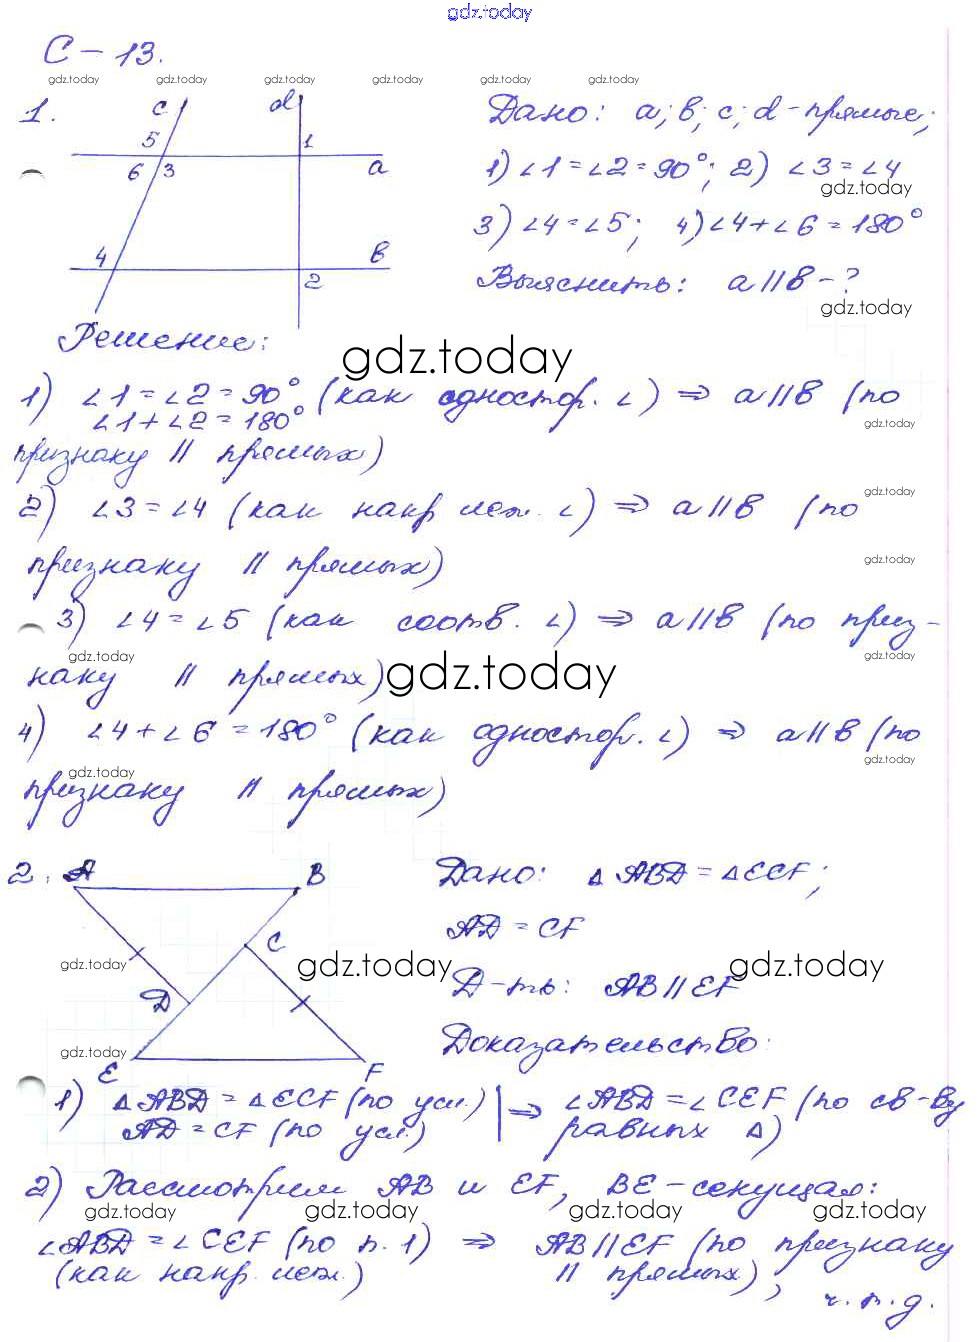 gdz.today
С – 13.
gdz.today gdz.today gdz.today gdz.today gdz.today gdz.today
1.
c d
5 1
6 3 a
4 в
2
Дано: а; в; с; d – прямые;
1) ∠1 = ∠2 = 90°; 2) ∠3 = ∠4
gdz.today
3) ∠4 = ∠5; 4) ∠4 + ∠6 = 180°
Выяснить: a || в – ?
gdz.today
Решение:
gdz.today
1) ∠1 = ∠2 = 90° (как одностор. ∠) ⇒ a || в (по
∠1 + ∠2 = 180°
gdz.today
признаку || прямых)
gdz.today
2) ∠3 = ∠4 (как накр. леж. ∠) ⇒ a || в (по
gdz.today
признаку || прямых)
3) ∠4 = ∠5 (как соотв. ∠) ⇒ a || в (по приз-
gdz.today gdz.today gdz.today
наку || прямых)
4) ∠4 + ∠6 = 180° (как одностор. ∠) ⇒ a || в (по
gdz.today gdz.today
признаку || прямых)
2. A B
C
D
E F
Дано: △ ABD = △ ECF;
AD = CF
gdz.today gdz.today gdz.today
Д-ть: AB || EF
Доказательство:
gdz.today
1) △ ABD = △ ECF (по усл.) | ⇒ ∠ABD = ∠CEF (по св-ву
AD = CF (по усл.) равных △)
2) Рассмотрим AB и EF, BE – секущая:
gdz.today gdz.today gdz.today gdz.today
∠ABD = ∠CEF (по п. 1) ⇒ AB || EF (по признаку
(как накр. леж.) || прямых),
ч.т.д.